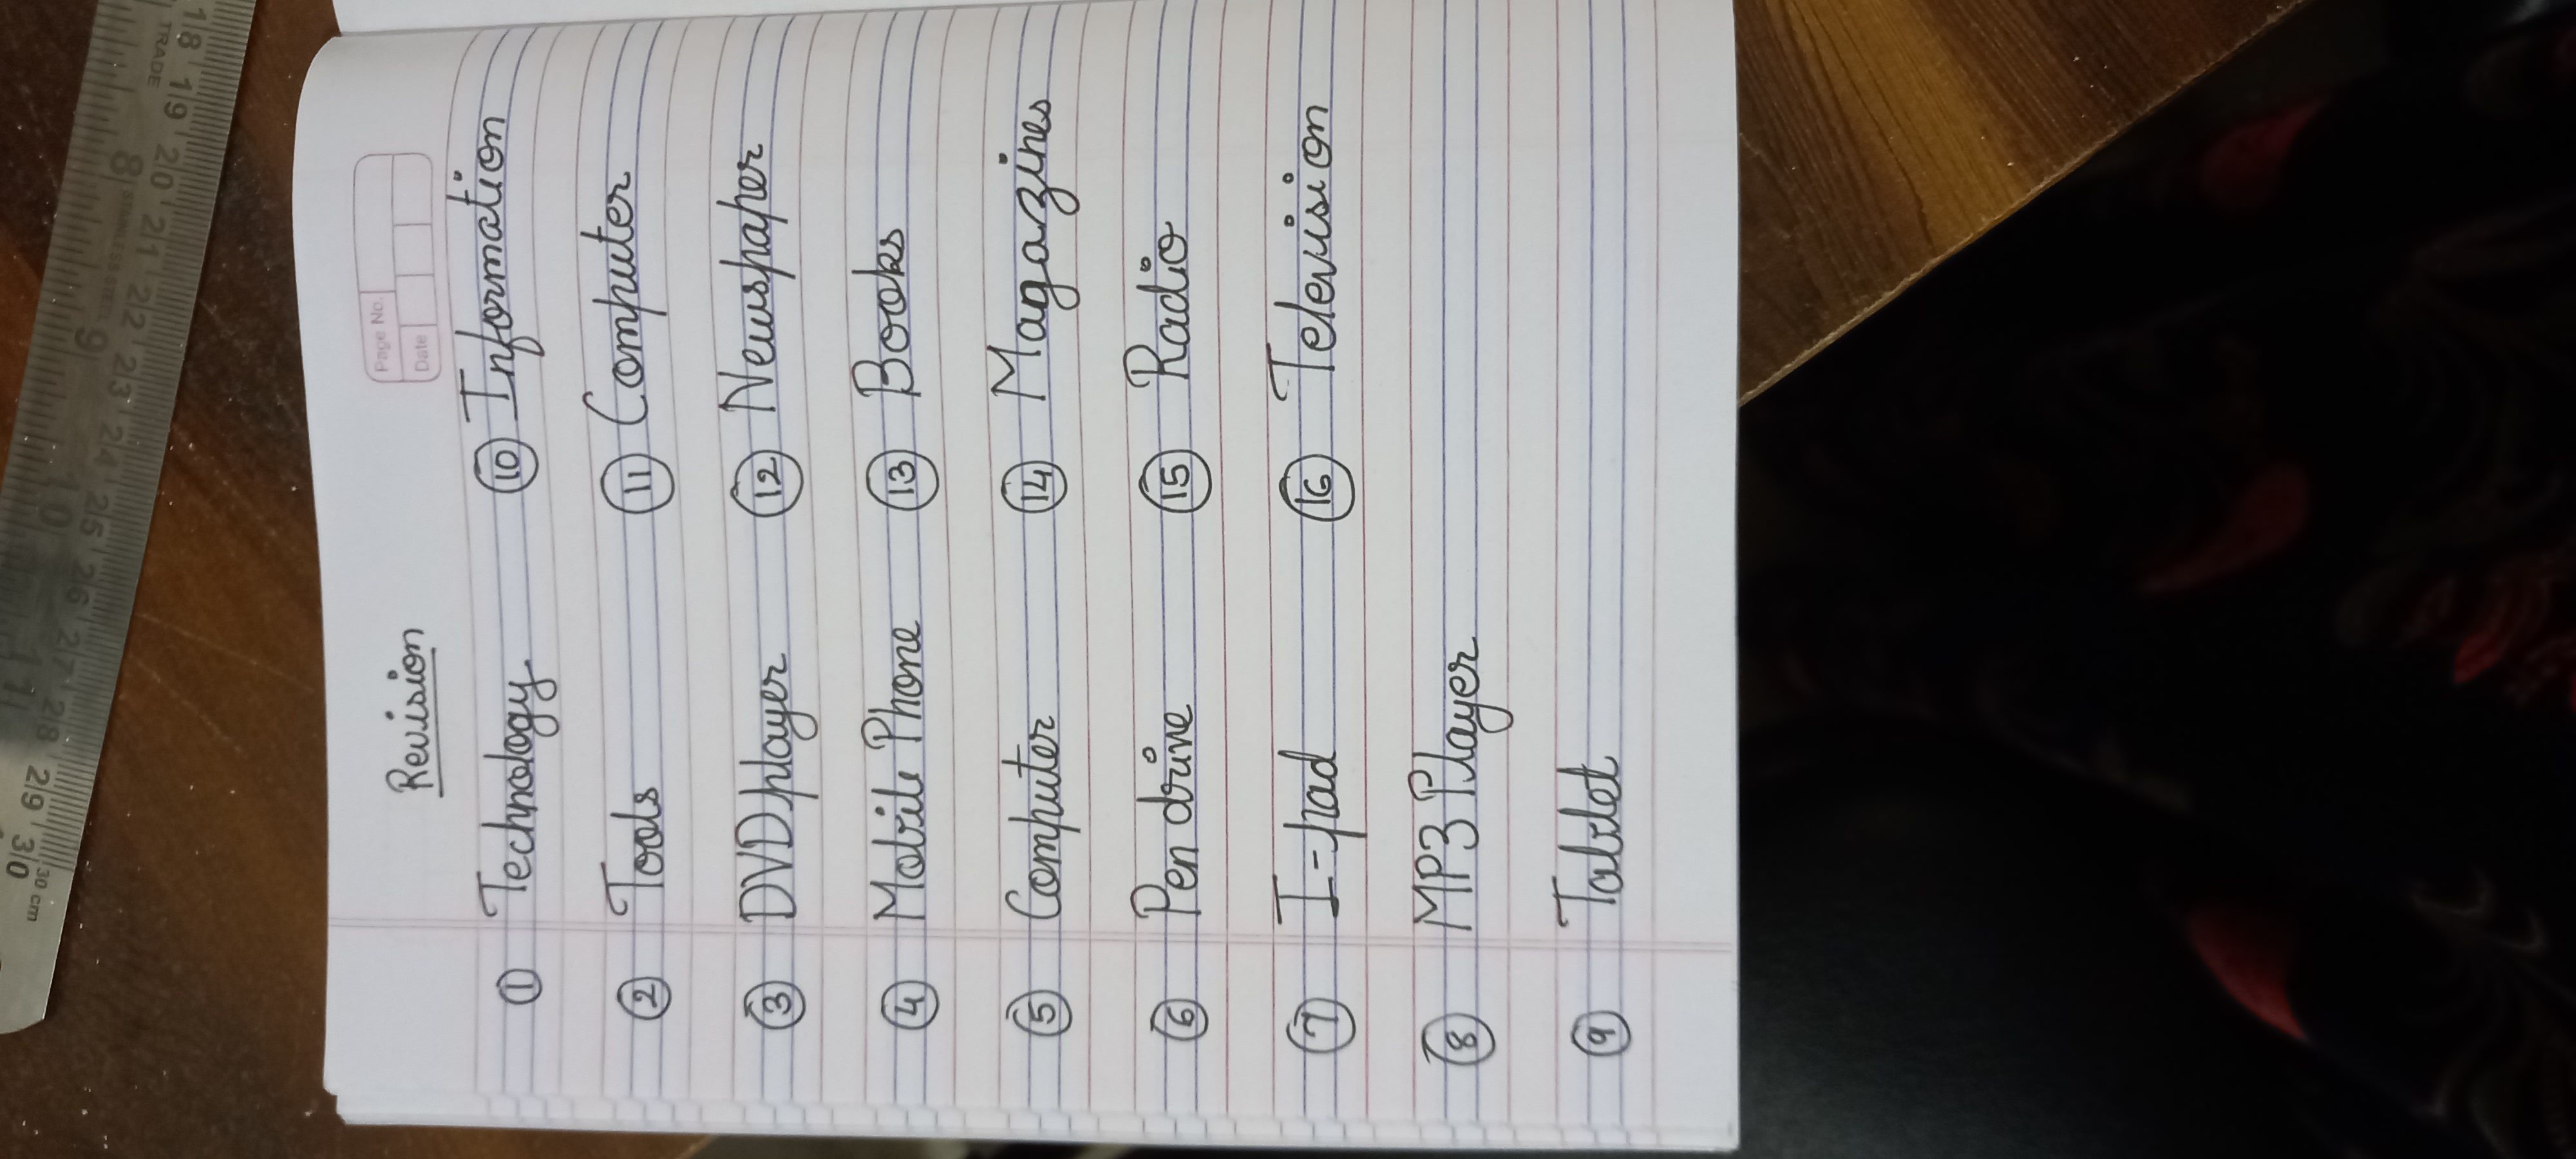 Page No.
Date
Revision
1 Technology
2 Tools
3 DVD player
4 Mobile Phone
5 Computer
6 Pen drive
7 I-pad
8 MP3 Player
9 Tablet
10 Information
11 Computer
12 Newspaper
13 Books
14 Magazines
15 Radio
16 Television
TRADE
18 19 20 21 22 23 24 25 26 27 28 29 30
30 cm
8 STAINLESS STEEL 9 10 11